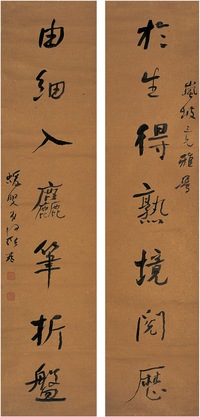 於生得熟境閱歷
嵐坡三兄雅屬
由細入麤筆折盤
蝯叟弟何紹基